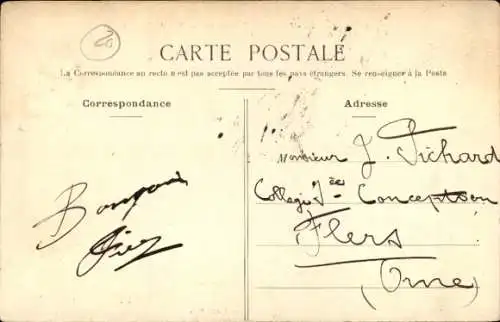 CARTE POSTALE
La Correspondance au recto n'est pas acceptée par tous les pays étrangers. Se renseigner à la Poste
Correspondance
Adresse
Monsieur J. Pichard
Collège Iée Conception
Flers
(Orne)